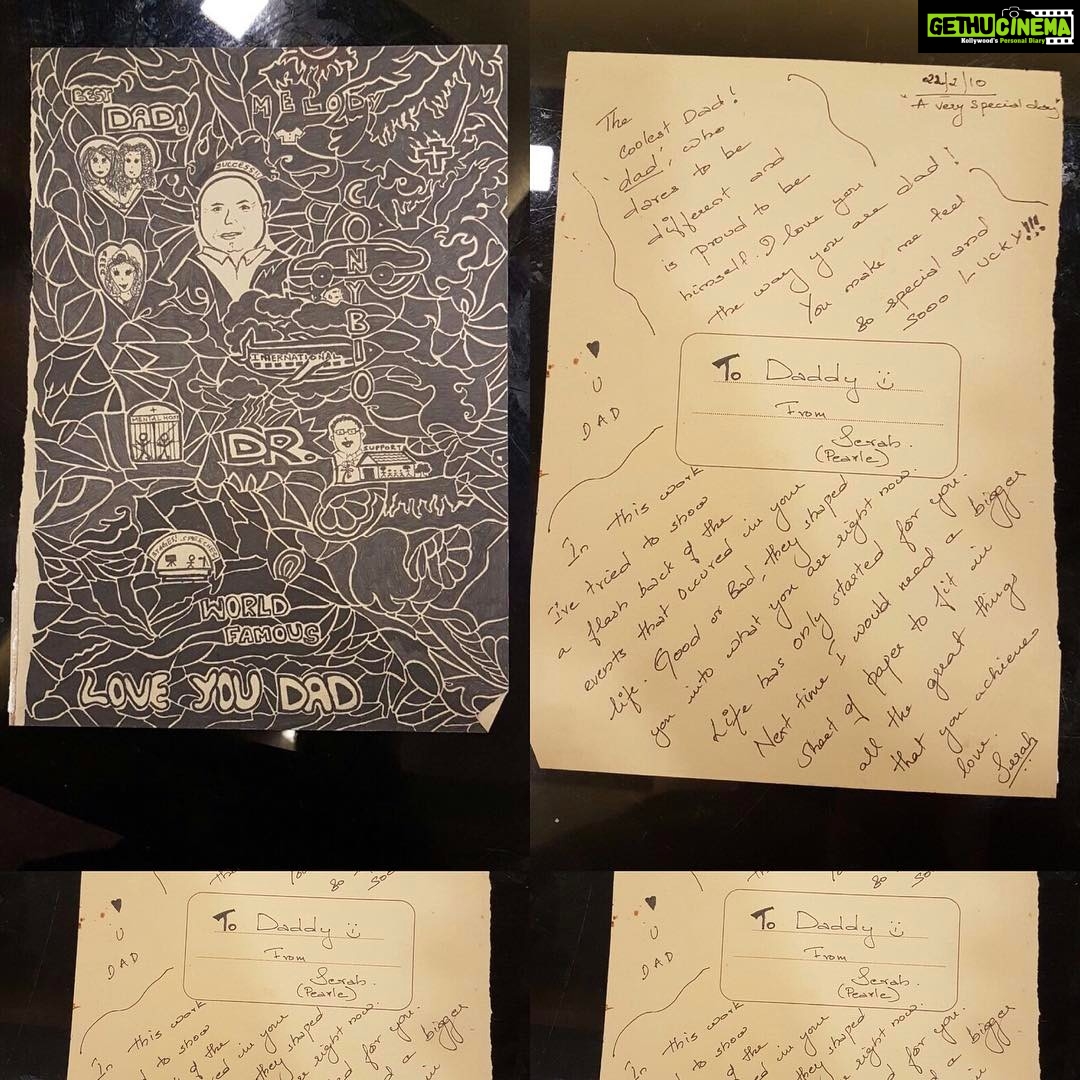 GETHUCINEMA
Kollywood's Personal Diary
BEST
DAD!
MELODY
SUCCESS!!
CONYBIO
INTERNATIONAL
MENTAL HOSP
DR.
SUPPORT
SPEECHES
WORLD
FAMOUS
LOVE YOU DAD
22/2/10
"A very special day"
The
coolest Dad!
'dad', who
dares to be
different and
is proud to be
himself. I love you
the way you are dad!
You make me feel
so special and
sooo Lucky!!!
♥
U
DAD
To Daddy
From
Serah.
(Pearle)
In this work
I've tried to show
a flash back of the
events that occured in your
life. Good or Bad, they shaped
you into what you are right now.
Life has only started for you.
Next time I would need a bigger
sheet of paper to fit in
all the great things
that you achieve
love.
Serah
♥
U
DAD
To Daddy
From
Serah.
(Pearle)
In this work
d to show
of the
ed in your
they shaped
re right now.
ed for you.
d a bigger
in
♥
U
DAD
To Daddy
From
Serah.
(Pearle)
In this work
d to show
of the
ed in your
they shaped
re right now.
ed for you.
d a bigger
in